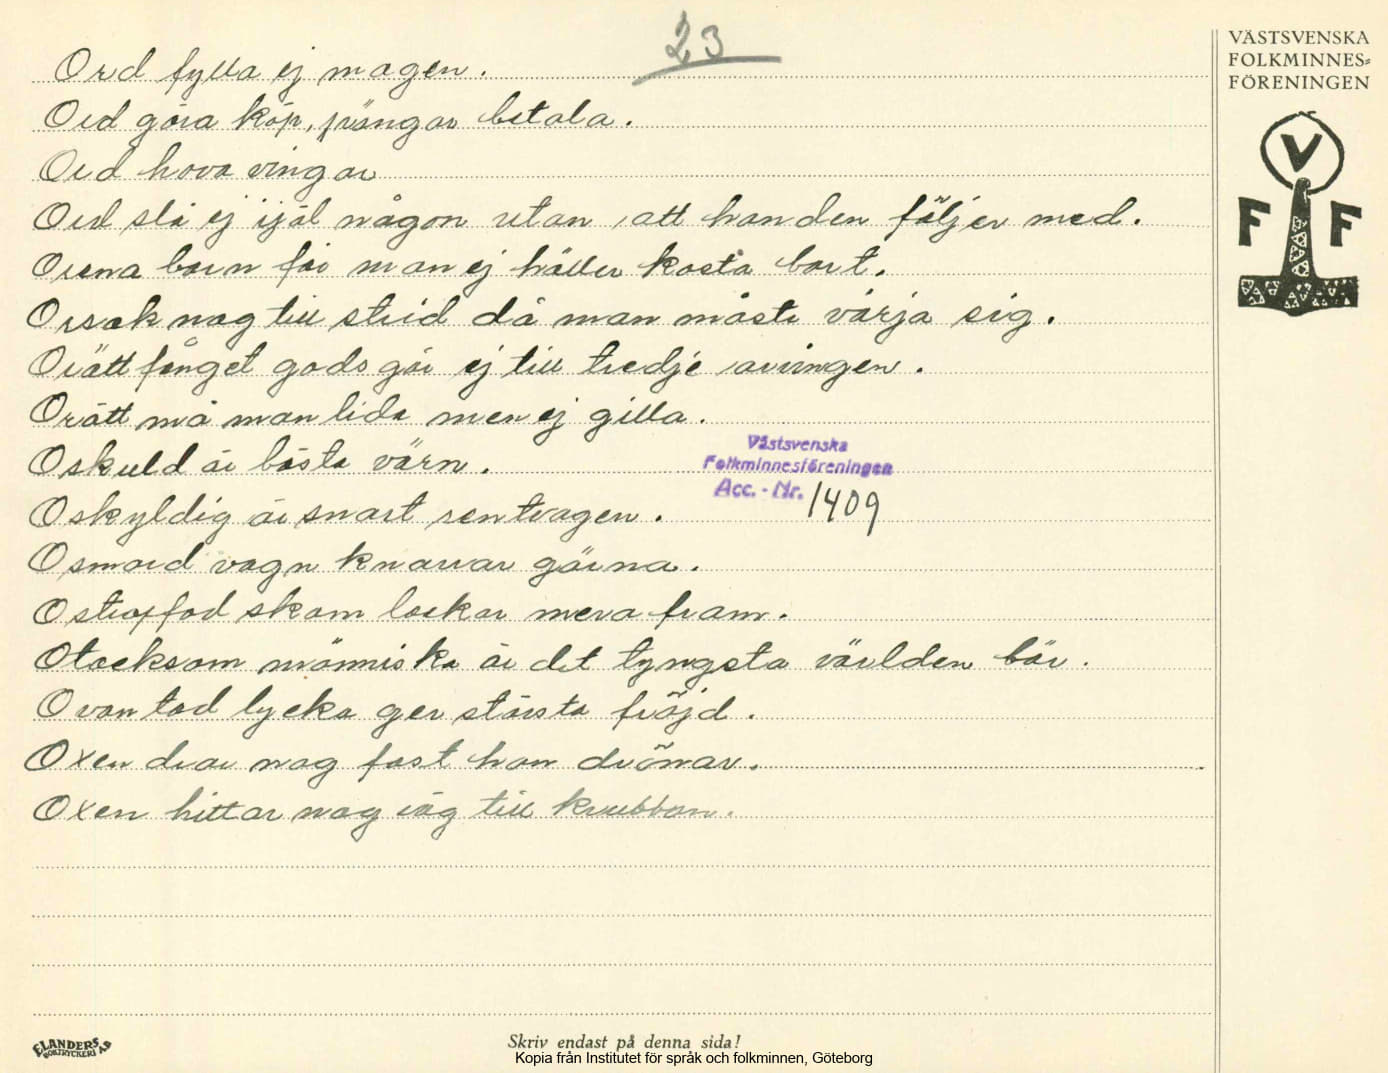 23
VÄSTSVENSKA
FOLKMINNES=
FÖRENINGEN
V
F F
Ord fylla ej magen.
Ord göra köp, pängar betala.
Ord hava vingar
Ord slå ej ijäl någon utan att handen följer med.
Orena barn får man ej häller kasta bort.
Orsak nog till strid då man måste värja sig.
Orätt fånget gods går ej till tredje arvingen.
Orätt må man lida men ej gilla.
Oskuld är bästa värn.
Oskyldig är snart rentvagen.
Osmord vagn knarrar gärna.
Ostraffad skam lockar mera fram.
Otacksam människa är det tyngsta världen bär.
Ovantad lycka ger största fröjd.
Oxen drar nog fast han drönar.
Oxen hittar nog väg till krubban.
Västsvenska
Folkminnesföreningen
Acc. - Nr. 1409
ELANDERS
BOKTRYCKERI AB
Skriv endast på denna sida!
Kopia från Institutet för språk och folkminnen, Göteborg